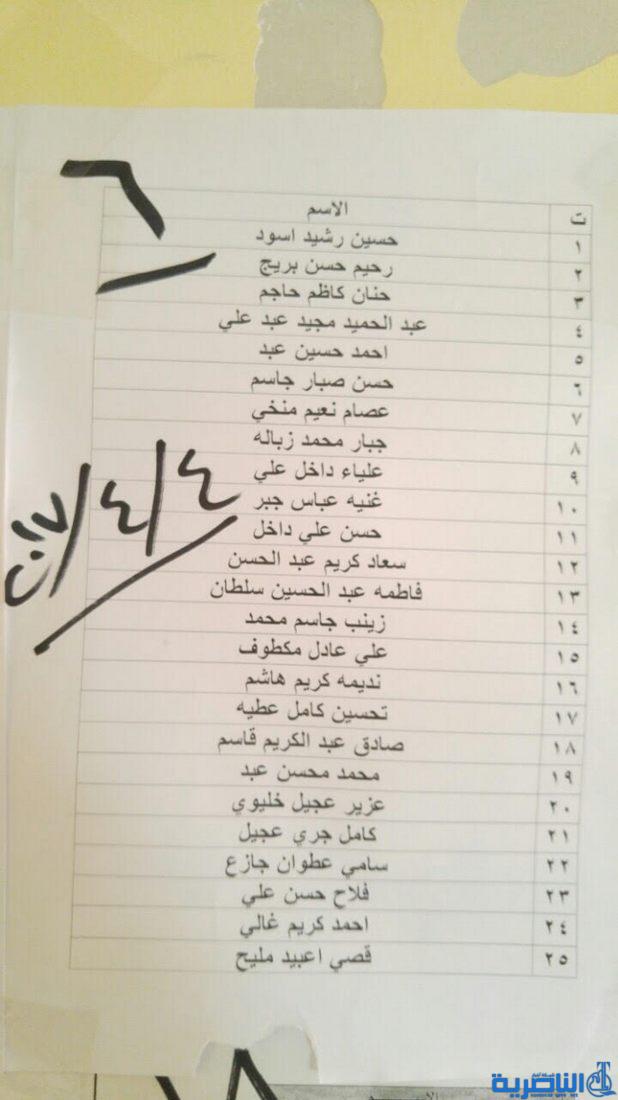 ٦
ت الاسم
١ حسين رشيد اسود
٢ رحيم حسن بريج
٣ حنان كاظم حاجم
٤ عبد الحميد مجيد عبد علي
٥ احمد حسين عبد
٦ حسن صبار جاسم
٧ عصام نعيم منخي
٨ جبار محمد زباله
٩ علياء داخل علي
١٠ غنيه عباس جبر
١١ حسن علي داخل
١٢ سعاد كريم عبد الحسن
١٣ فاطمه عبد الحسين سلطان
١٤ زينب جاسم محمد
١٥ علي عادل مكطوف
١٦ نديمه كريم هاشم
١٧ تحسين كامل عطيه
١٨ صادق عبد الكريم قاسم
١٩ محمد محسن عبد
٢٠ عزير عجيل خليوي
٢١ كامل جري عجيل
٢٢ سامي عطوان جازع
٢٣ فلاح حسن علي
٢٤ احمد كريم غالي
٢٥ قصي اعبيد مليح
٤/٤/٢٠١٧
شبكة اخبار
الناصرية